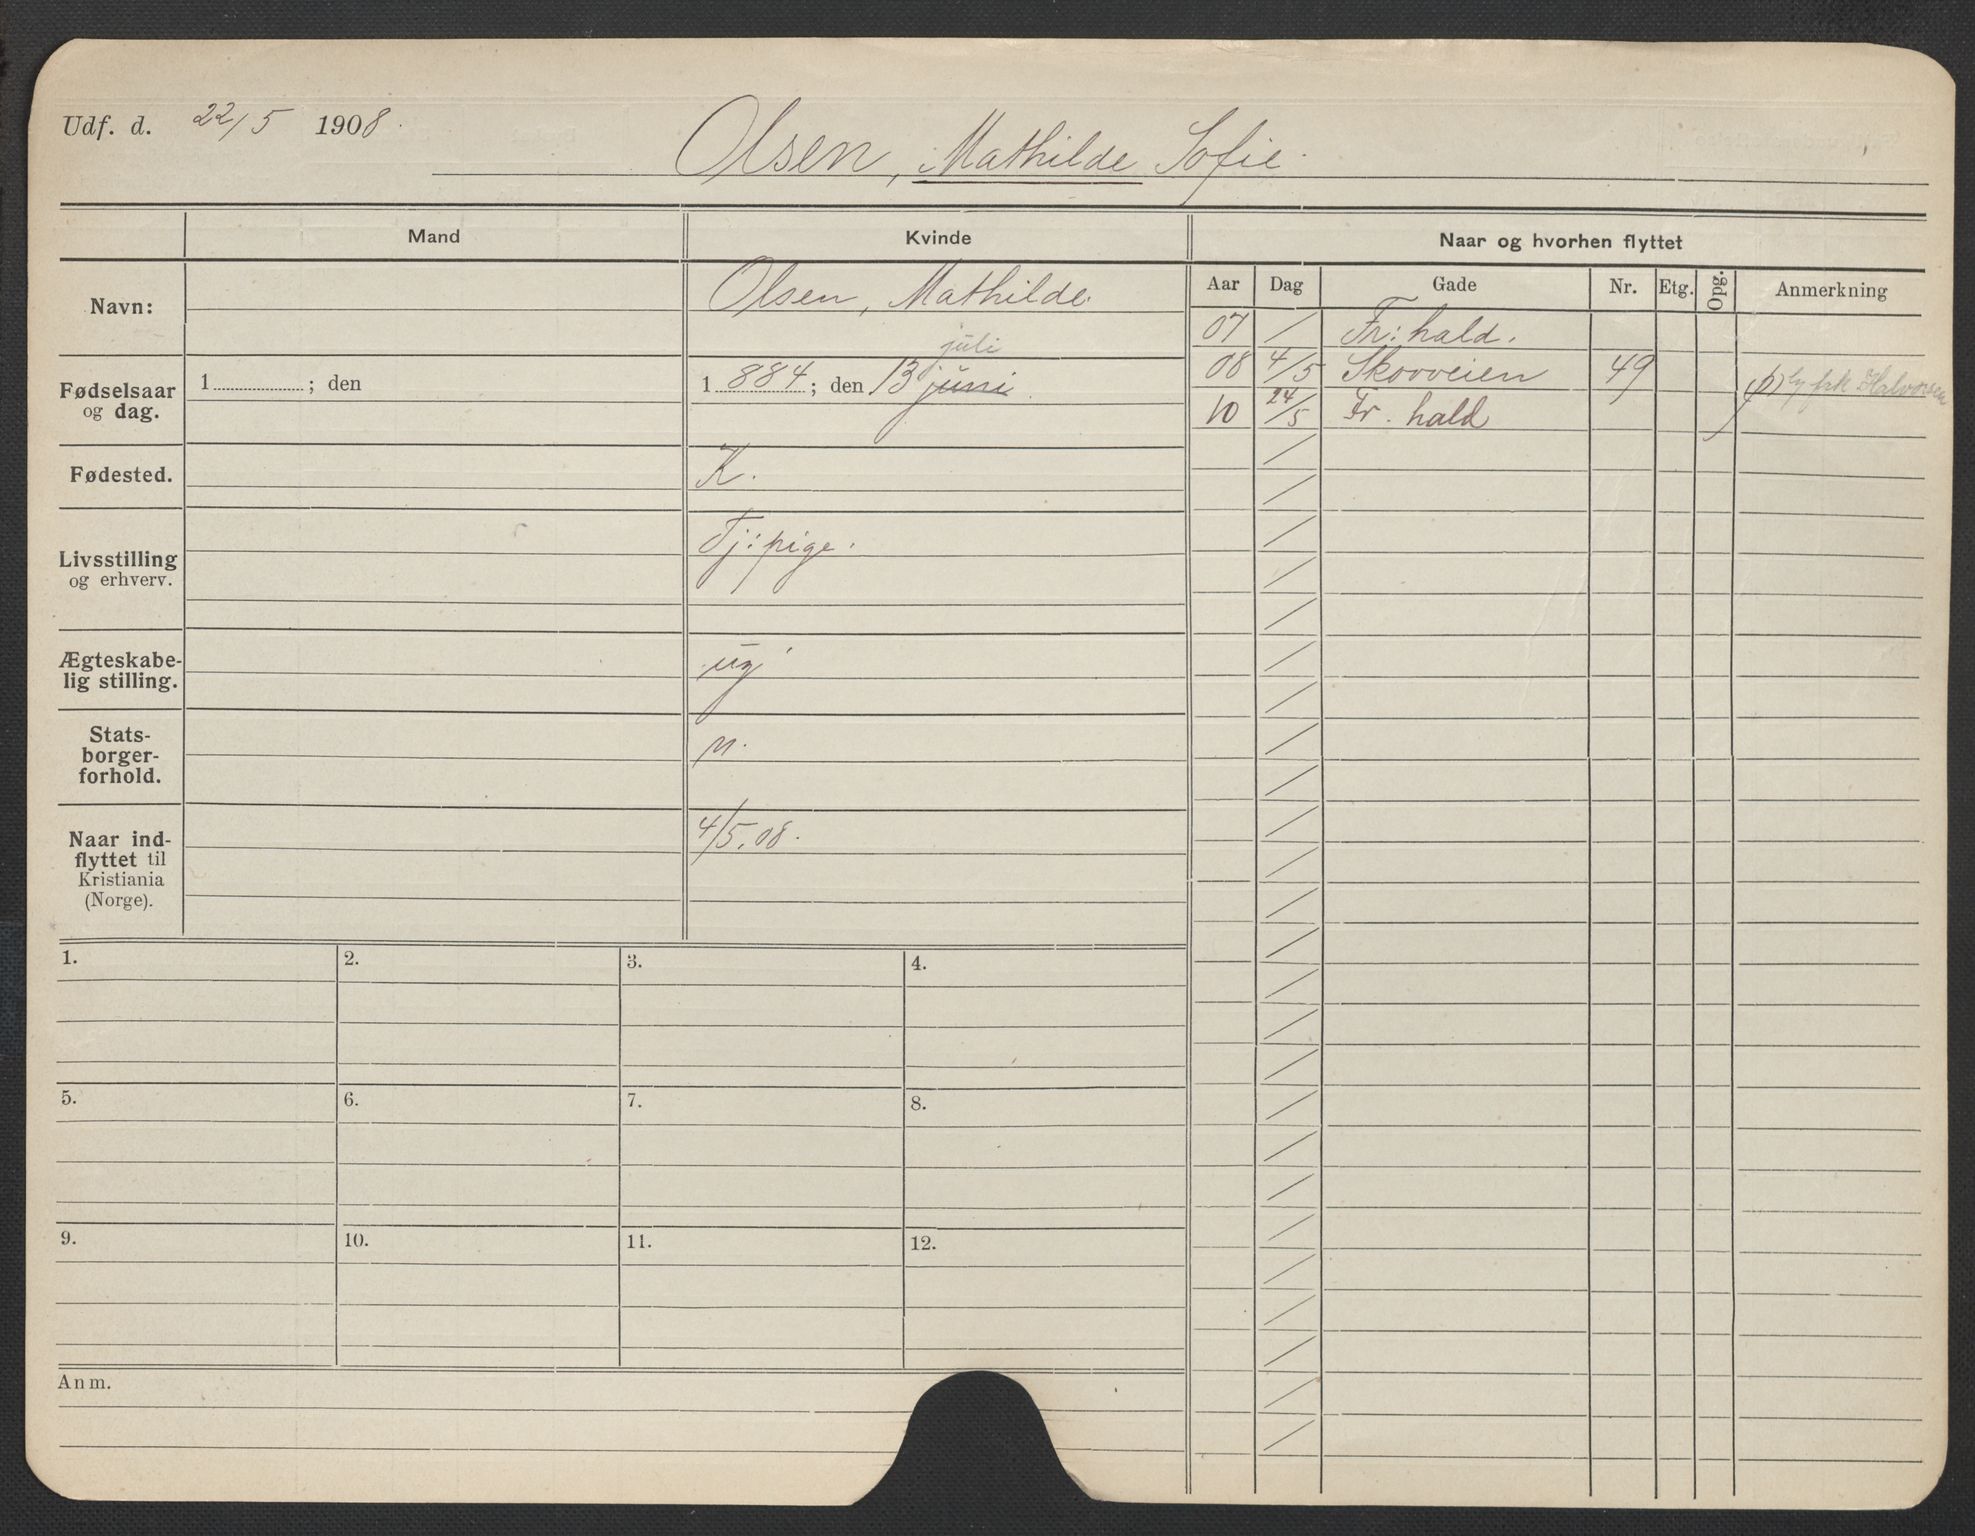 Udf. d. 22/5 1908.
Olsen, Mathilde Sofie.
Mand
Kvinde
Naar og hvorhen flyttet
Navn:
Olsen, Mathilde.
Aar Dag Gade Nr. Etg. Opg. Anmerkning
07 / Fr: hald.
08 4/5 Skovveien 49 frk Halvorsen
10 24/5 Fr. hald
Fødselsaar
og dag.
1 ; den
juli
1 884 ; den 13 juni
Fødested.
K.
Livsstilling
og erhverv.
Tj: pige.
Ægteskabe-
lig stilling.
ug
Stats-
borger-
forhold.
n.
Naar ind-
flyttet til
Kristiania
(Norge).
4/5.08.
1. 2. 3. 4.
5. 6. 7. 8.
9. 10. 11. 12.
Anm.